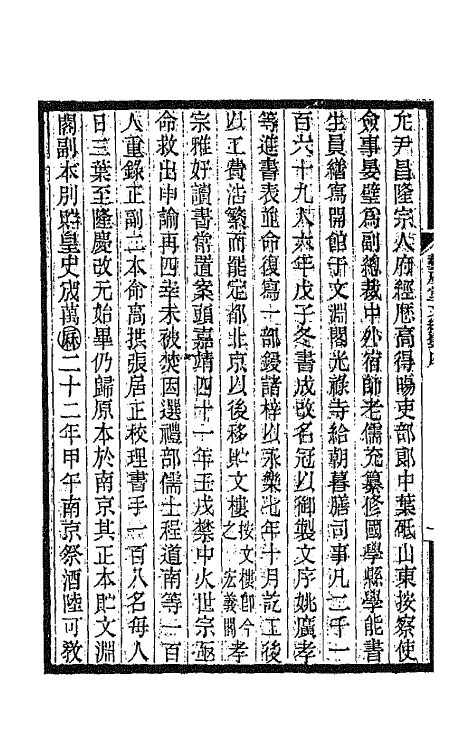 允尹昌隆宗人府經歷高得暘吏部郎中葉砥山東按察使
僉事晏璧爲副總裁中外宿師老儒充纂修國學縣學能書
生員繕寫開館于文淵閣光祿寺給朝暮膳司事凡二千一
百六十九人六年戊子冬書成改名冠以御製文序姚廣孝
等進書表並命復寫一部鋟諸梓以永樂七年十月訖工後
以工費浩繁而罷定都北京以後移貯文樓按文樓卽今之宏義閣孝
宗雅好讀書常置案頭嘉靖四十一年壬戌禁中火世宗亟
命救出申諭再四幸未被焚因選禮部儒士程道南等一百
人重錄正副二本命高拱張居正校理書手一百八名每人
日三葉至隆慶改元始畢仍歸原本於南京其正本貯文淵
閣副本別貯皇史宬萬曆二十二年甲午南京祭酒陸可敎